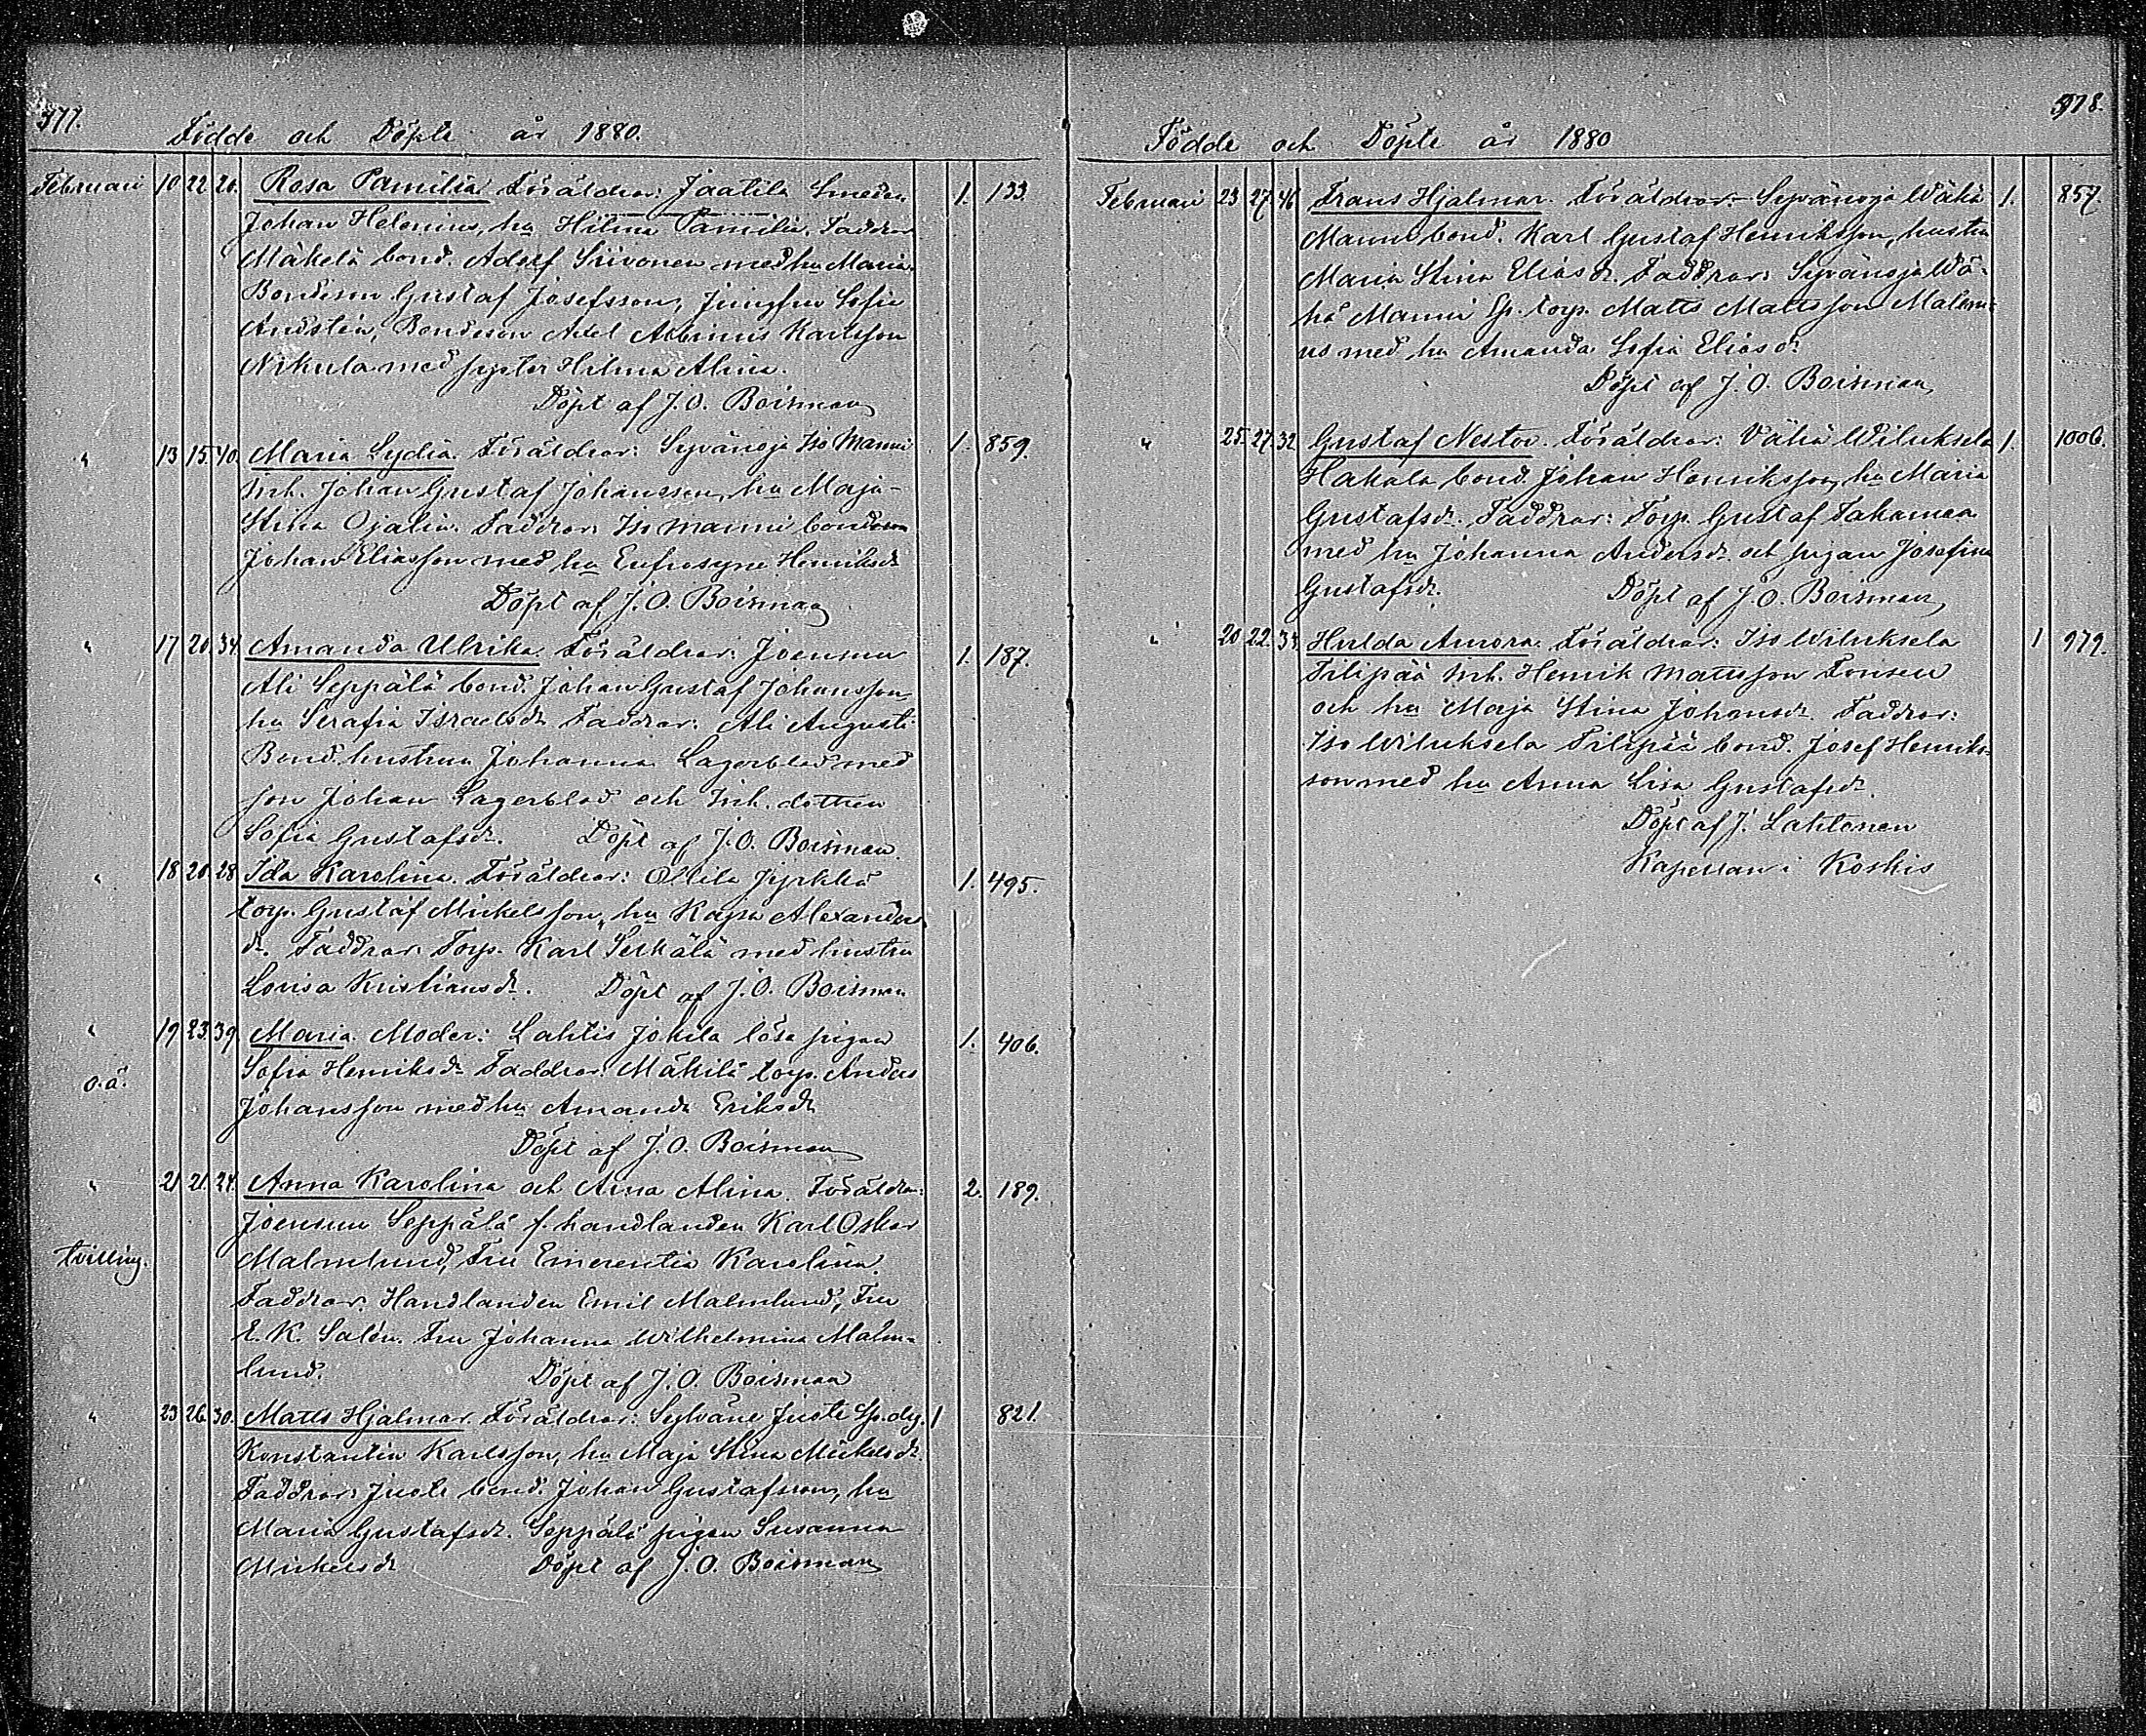 577.
Födde och Döpte år 1880.
Februari 10 22 20. Rosa Pamilia. Föräldrar: Jaatila Smeden 1. 133.
Johan Helenius, hu Hilma Pamilia. Faddrar
Mäkelä bond. Adolf Siivonen med hu Maria.
Bondeson Gustaf Josefsson, Jungfru Sofia
Andstén, Bondeson Axel Albinus Karlsson
Nikula med syster Hilma Alina.
Döpt af J. O. Boisman
" 13 15. 40. Maria Lydia. Föräldrar: Syvänoja Iso Manni 1. 859.
Inh. Johan Gustaf Johansson, hu Maja-
Stina Ojalin. Faddrar: Iso Manni bondeson
Johan Eliasson med hu Eufrosyne Henriksdr
Döpt af J. O. Boisman
" 17 20. 34. Amanda Ulrika. Föräldrar: Joensuu 1. 187.
Ali Seppälä bond. Johan Gustaf Johansson,
hu Serafia Israelsdr Faddrar: Ali Augusti
Bond. hustrun Johanna Lagerblad med
son Johan Lagerblad och Inh. dottren
Sofia Gustafsdr. Döpt af J. O. Boisman.
" 18 20. 28. Ida Karolina. Föräldrar: Ollila Jyrkkä 1. 495.
torp. Gustaf Mickelsson, hu Kajsa Alexanders
dr. Faddrar: Torp. Karl Serkälä med hustru
Lovisa Kristiansdr. Döpt af J. O. Boisman
" 19 23. 39. Maria. Moder: Lahtis Jokela lösa pigan 1. 406.
o.ä. Sofia Henriksdr Faddrar: Mäkilä torp. Anders
Johansson med hu Amanda Eriksdr
Döpt af J. O. Boisman
" 21 21. 24. Anna Karolina och Aina Alina. Föräldrar: 2. 189.
Joensuu Seppälä f. handlanden Karl Oskar
tvilling. Malmlund, Fru Emerentia Karolina.
Faddrar: Handlanden Emil Malmlund, Fru
E. K. Salén. Fru Johanna Wilhelmina Malm-
lund. Döpt af J. O. Boisman
" 23 26. 30. Matts Hjalmar. Föräldrar: Sylväne Juote Sp. dg. 1 821.
Konstantin Karlsson, hu Maja Stina Mickelsdr.
Faddrar: Juote bond. Johan Gustafsson, hu
Maria Gustafsdr. Seppälä pigan Susanna
Mickelsdr Döpt af J. O. Boisman
578.
Födde och Döpte år 1880
Februari 23 27. 46 Frans Hjalmar. Föräldrar: Syvänoja Wähä 1. 857.
Manni bond. Karl Gustaf Henriksson, hustru
Maria Stina Eliasdr. Faddrar: Syvänoja Wä-
hä Manni Sp. torp. Matts Mattsson Malmi-
us med hu Amanda Sofia Eliasdr
Döpt af J. O. Boisman,
" 25. 27. 32 Gustaf Nestor. Föräldrar: Vähä Wiluksela 1. 1006.
Hakala bond. Johan Henriksson, hu Maria
Gustafsdr. Faddrar: Torp. Gustaf Takamaa
med hu Johanna Andersdr och pigan Josefina
Gustafsdr. Döpt af J. O. Boisman,
" 20. 22. 33. Hulda Aurora. Föräldrar: Iso Wiluksela 1 979.
Filipää Inh. Henrik Mattsson Forisen
och hu Maja Stina Johansdr. Faddrar:
Iso Wiluksela Filipää bond. Josef Henriks-
son med hu Anna Lisa Gustafsdr.
Döpt af J. Lahtonen
Kapellan i Koskis